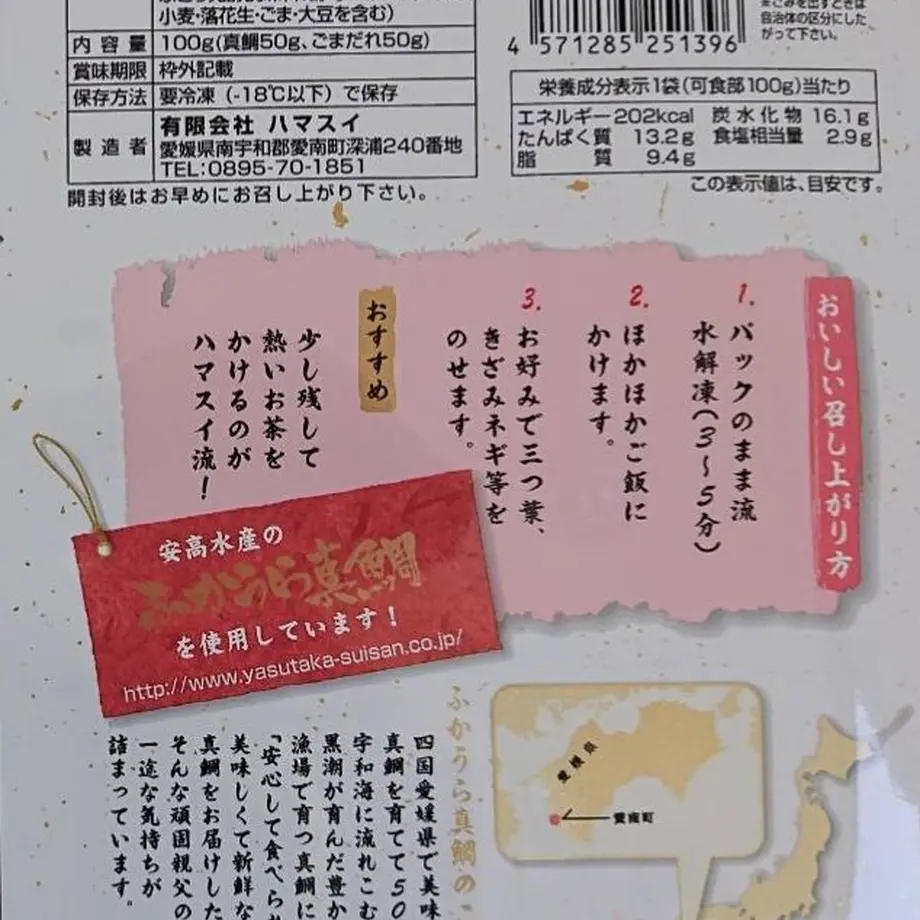 小麦・落花生・ごま・大豆を含む)
内容量 100g(真鯛50g、ごまだれ50g)
賞味期限 枠外記載
保存方法 要冷凍(-18℃以下)で保存
製造者 有限会社 ハマスイ
愛媛県南宇和郡愛南町深浦240番地
TEL:0895-70-1851
開封後はお早めにお召し上がり下さい。
4 571285 251396
※ごみを出すときは
自治体の区分にした
がって下さい。
栄養成分表示1袋(可食部100g)当たり
エネルギー 202kcal 炭水化物 16.1g
たんぱく質 13.2g 食塩相当量 2.9g
脂質 9.4g
この表示値は、目安です。
おいしい召し上がり方
1.
パックのまま流
水解凍(3〜5分)
2.
ほかほかご飯に
かけます。
3.
お好みで三つ葉、
きざみネギ等を
のせます。
おすすめ
少し残して
熱いお茶を
かけるのが
ハマスイ流!
安高水産の
ふかうら真鯛
を使用しています!
http://www.yasutaka-suisan.co.jp/
ふかうら真鯛の
四国愛媛県で美味
真鯛を育てて50
宇和海に流れこむ
黒潮が育んだ豊か
漁場で育つ真鯛に
「安心して食べら
美味しくて新鮮な
真鯛をお届けした
そんな頑固親父の
一途な気持ちが
詰まっています。
愛媛県
愛南町